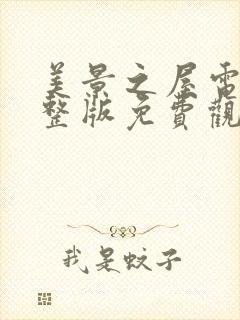 美景之屋電
整版免費觀
我是蚊子